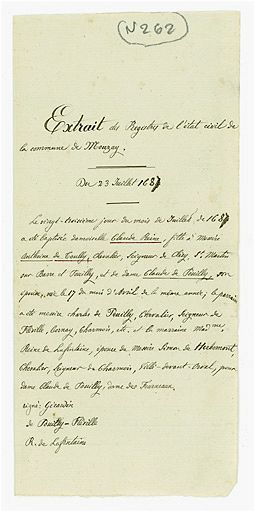 N 262
Extrait des Registres de l'état civil de
la commune de Mouzay.
Du 23 Juillet 1687
Le vingt-troisième jour du mois de Juillet de 1687
a été baptisée damoiselle Claude Reine, fille à Messire
Anthoine de Pouilly, Chevalier, Seigneur de
sur Barre et Pouilly, et de dame Claude de Pouilly, son
épouse, née le 17 du mois d'Avril de la même année; le parrain
a été messire Charles de Pouilly, Chevalier, Seigneur de
Fléville, Cornay, Charmois, etc. et la marraine Madme
Reine de Lafontaine, épouse de Messire Simon de Herbemont,
Chevalier, Seigneur de Charmois, Ville-devant-Orval, pour
dame Claude de Pouilly, dame des Fourneaux.
signé: Girardin
de Pouilly-Fléville
R. de Lafontaine